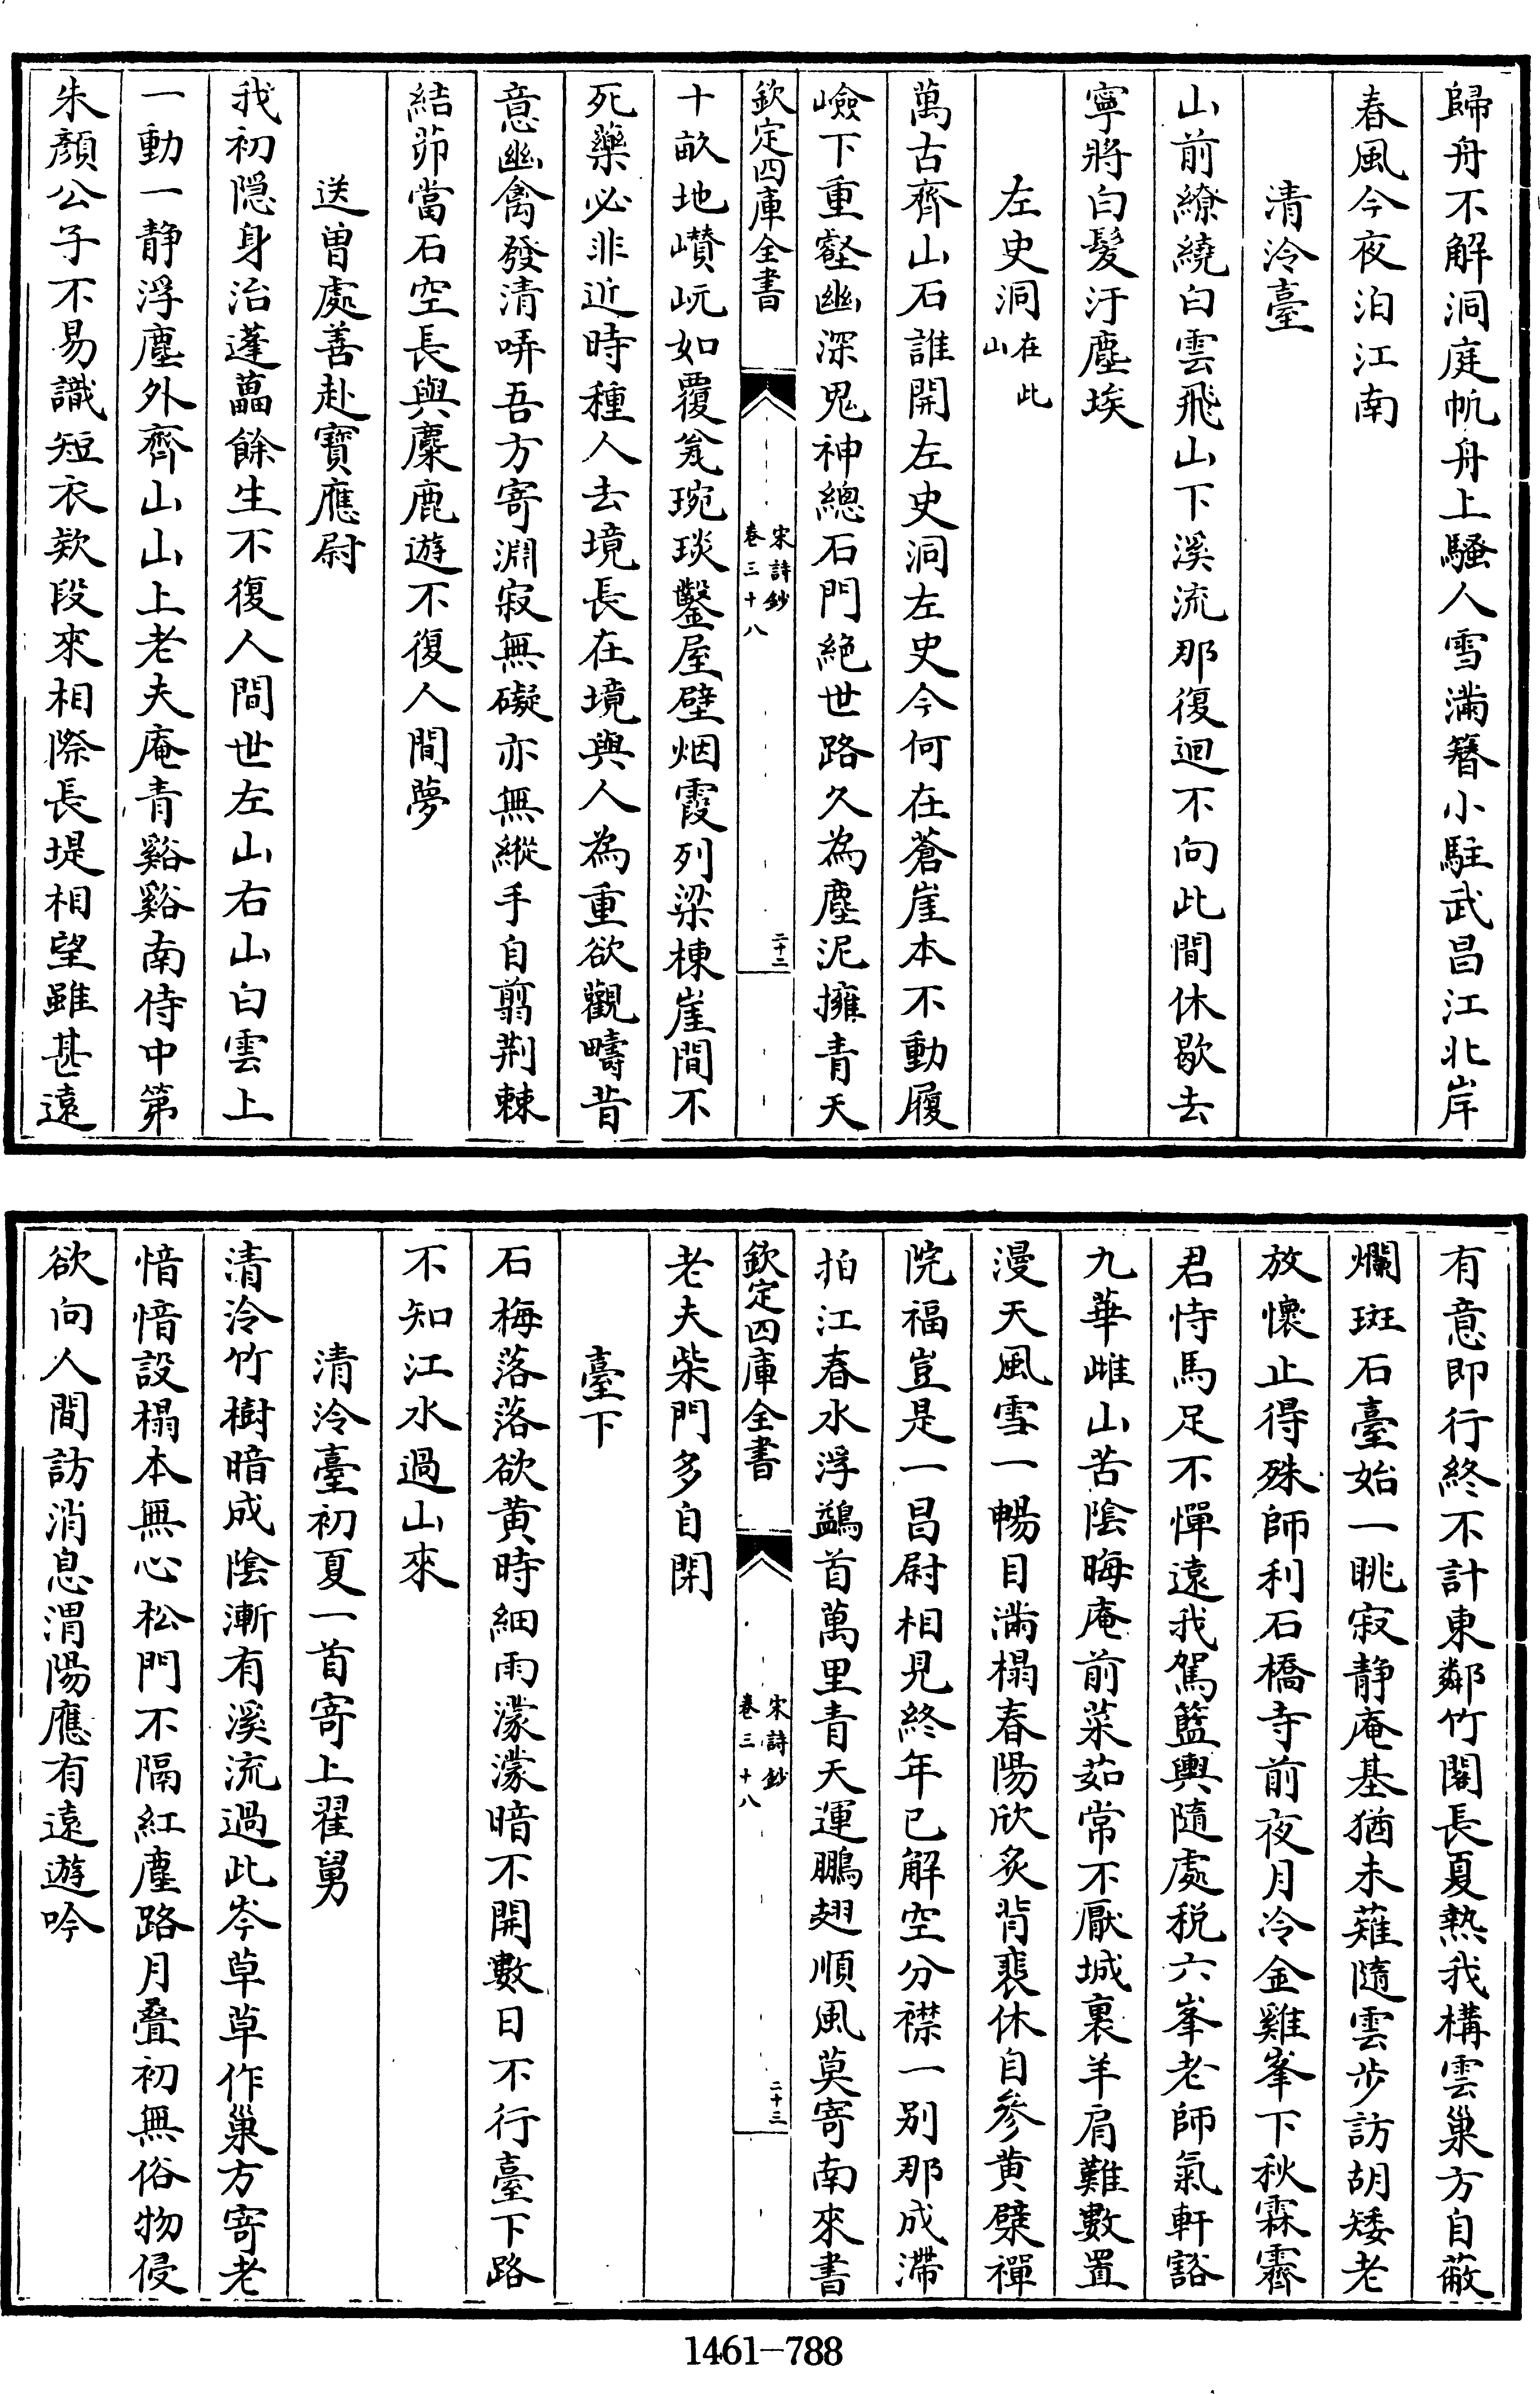 歸舟不解洞庭帆舟上騷人雪滿簪小駐武昌江北岸
春風今夜泊江南
清泠臺
山前繚繞白雲飛山下溪流那復迴不向此間休歇去
寧將白髮汙塵埃
左史洞在此山
萬古齊山石誰開左史洞左史今何在蒼崖本不動履
嶮下重壑幽深鬼神總石門絶世路久為塵泥擁青天
欽定四庫全書
宋詩鈔
卷三十八
二十二
十畝地巑岏如覆瓮琬琰鑿屋壁烟霞列梁棟崖間不
死藥必非近時種人去境長在境與人為重欲觀疇昔
意幽禽發清哢吾方寄淵寂無礙亦無縱手自翦荆棘
結茆當石空長與麋鹿遊不復人間夢
送曽處善赴寶應尉
我初隱身治蓬藟餘生不復人間世左山右山白雲上
一動一靜浮塵外齊山山上老夫庵青谿谿南侍中第
朱顏公子不易識短衣欵段來相際長堤相望雖甚遠
有意即行終不計東鄰竹閣長夏熱我構雲巢方自蔽
斕斑石臺始一眺寂靜庵基猶未薙隨雲步訪胡矮老
放懷止得殊師利石橋寺前夜月冷金雞峯下秋霖霽
君恃馬足不憚遠我駕籃輿隨處税六峯老師氣軒豁
九華雌山苦陰晦庵前菜茹常不厭城裏羊肩難數置
漫天風雪一暢目滿榻春陽欣炙背裴休自參黄檗禪
院福豈是一昌尉相見終年已解空分襟一別那成滯
拍江春水浮鷁首萬里青天運鵬翅順風莫寄南來書
欽定四庫全書
宋詩鈔
卷三十八
二十三
老夫柴門多自閉
臺下
石梅落落欲黄時細雨濛濛暗不開數日不行臺下路
不知江水過山來
清泠臺初夏一首寄上翟舅
清泠竹樹暗成陰漸有溪流過此岑草草作巢方寄老
愔愔設榻本無心松門不隔紅塵路月疊初無俗物侵
欲向人間訪消息渭陽應有遠遊吟
1461-788